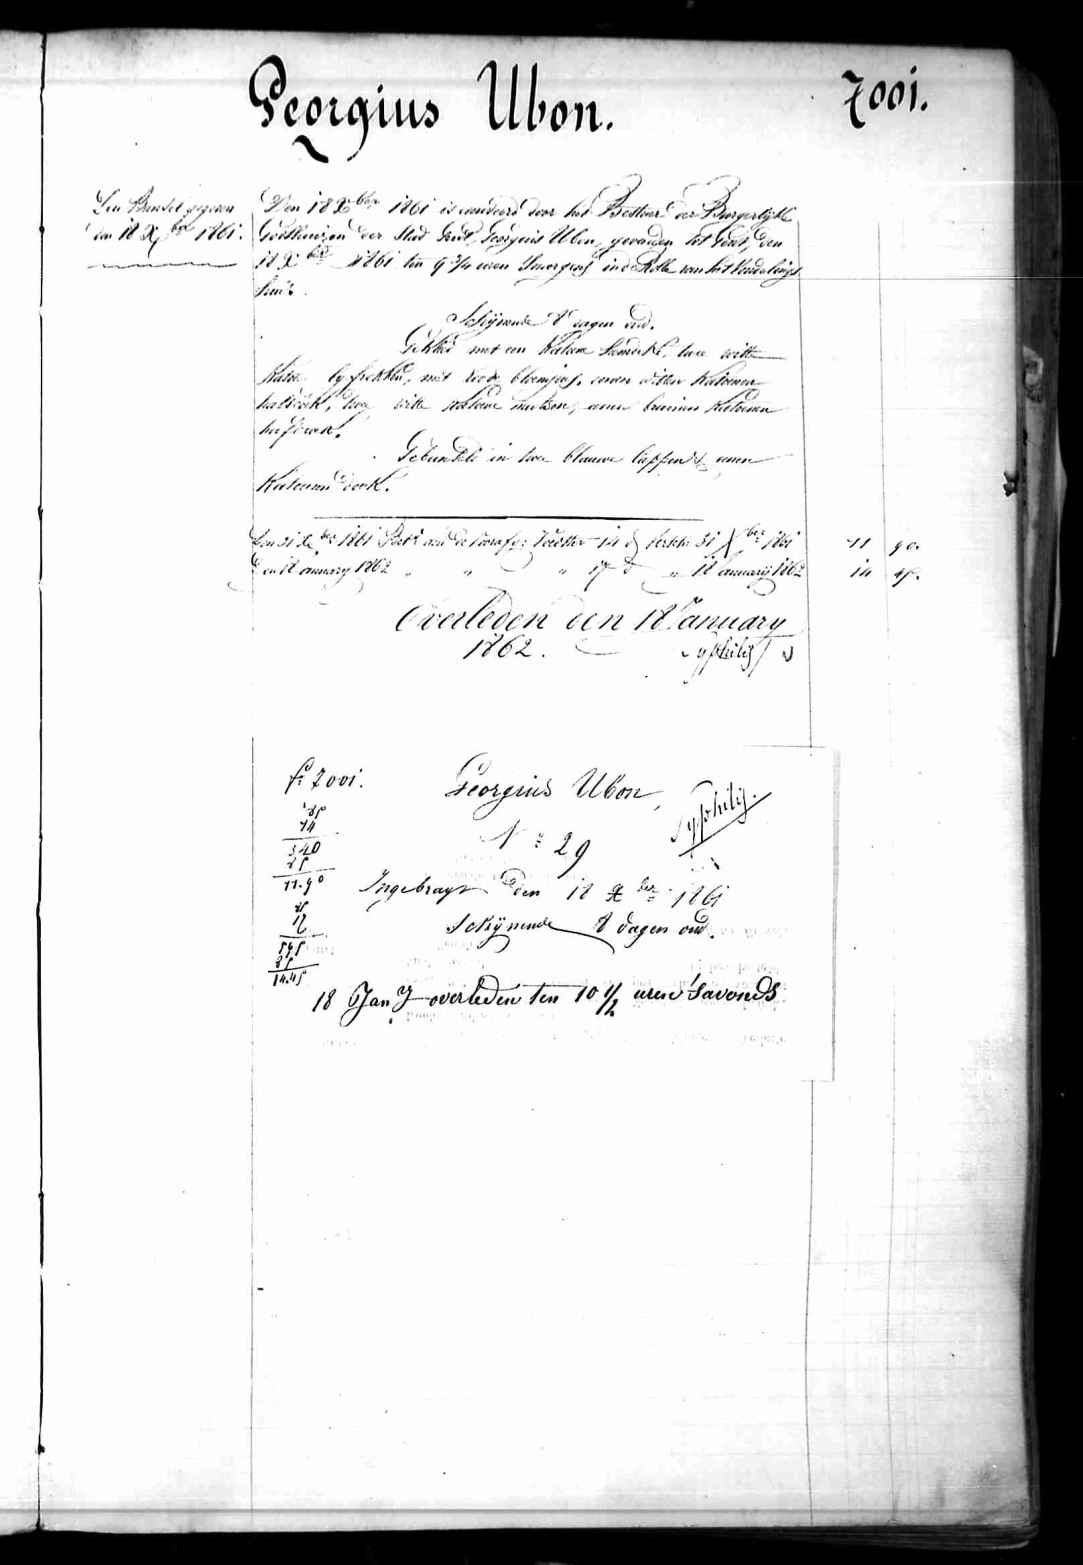 Georgius Ubon. 7001.
Een Bundel gegeven
den 18 Xber 1861.
Den 18 Xber 1861 is aanveerd door het Bestuur der Burgerlijke
Godshuizen der Stad Gend, Georgius Ubon, gevonden tot Gend, den
18 Xber 1861 ten 9 3/4 uren 's morgens in de Rolle van het Vondelings
huis.
Schijnende 8 dagen oud.
Gekleed met een Katoene hemdeke, twee witte
met roode bloemjes, eenen witten Katoenen
halsdoek, twee witte katoene mutsen, eenen bruinen Katoenen
neusdoek.
Gebundeld in twee blauwe lappen & eenen
Katoenen doek.
Den 31 Xber 1861 14 d 31 Xber 1861 11 90
Den 18 January 1862 " " " 17 d " 18 January 1862 14 45
Overleden den 18 January
1862. Syphilis
f° 7001. Georgius Ubon, Syphilis.
85
14
340
85
11.90
N° 29
Ingebragt den 18 Xber 1861
Schijnende 8 dagen oud.
85
17
595
85
14.45
18 Jany overleden ten 10 1/2 uren 'savonds